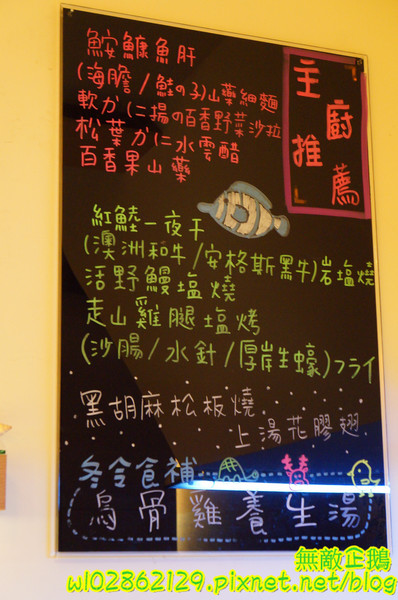 主廚推薦
鮟鱇魚肝
(海膽/鮭の子)山藥細麵
軟か(二揚の百香野菜沙拉
松葉か(二水雲醋
百香果山藥
紅鮭一夜干
(澳洲和牛/安格斯黑牛)岩塩燒
活野鰻塩燒
走山雞腿塩烤
(沙腸/水針/厚岸生蠔)フライ
黑胡麻松板燒
上湯花膠翅
冬令食補
烏骨雞養生湯
無敵企鵝
wl02862129.pixnet.net/blog